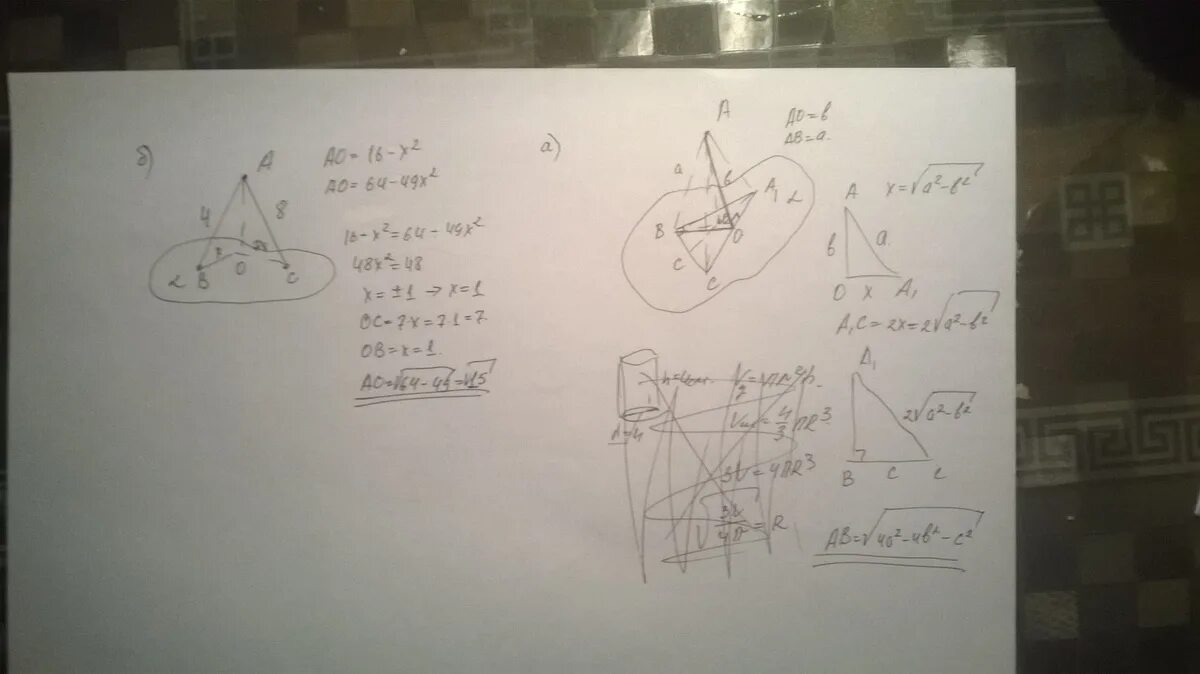 б)
A
4
8
x
7x
O
B
C
α
AO = 16 - x²
AO = 64 - 49x²
16 - x² = 64 - 49x²
48x² = 48
x = ±1 → x = 1
OC = 7x = 7·1 = 7
OB = x = 1.
AO = √64 - 49 = √15
а)
A
AO = в
AB = a.
a
в
A₁
α
B
O
C
C
x = √a² - в²
A
в
a
O
x
A₁
A₁C = 2x = 2√a² - в²
A₁
2√a² - в²
B
C
c
AB = √4a² - 4в² - c²
h = 4см.
V = πr²h.
Vш = 4/3 πR³
3V = 4πR³
√3V/4π = R